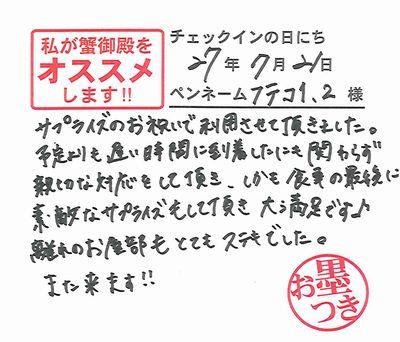 私が蟹御殿を
オススメ
します!!
チェックインの日にち
27年7月21日
ペンネーム フテコ1、2 様
サプライズのお祝いで利用させて頂きました。
予定よりも遅い時間に到着したにも関わらず
親切な対応をして頂き、しかも食事の最後に
素敵なサプライズもして頂き大満足です♪
離れのお部屋もとてもステキでした。
また来ます!!
お墨つき